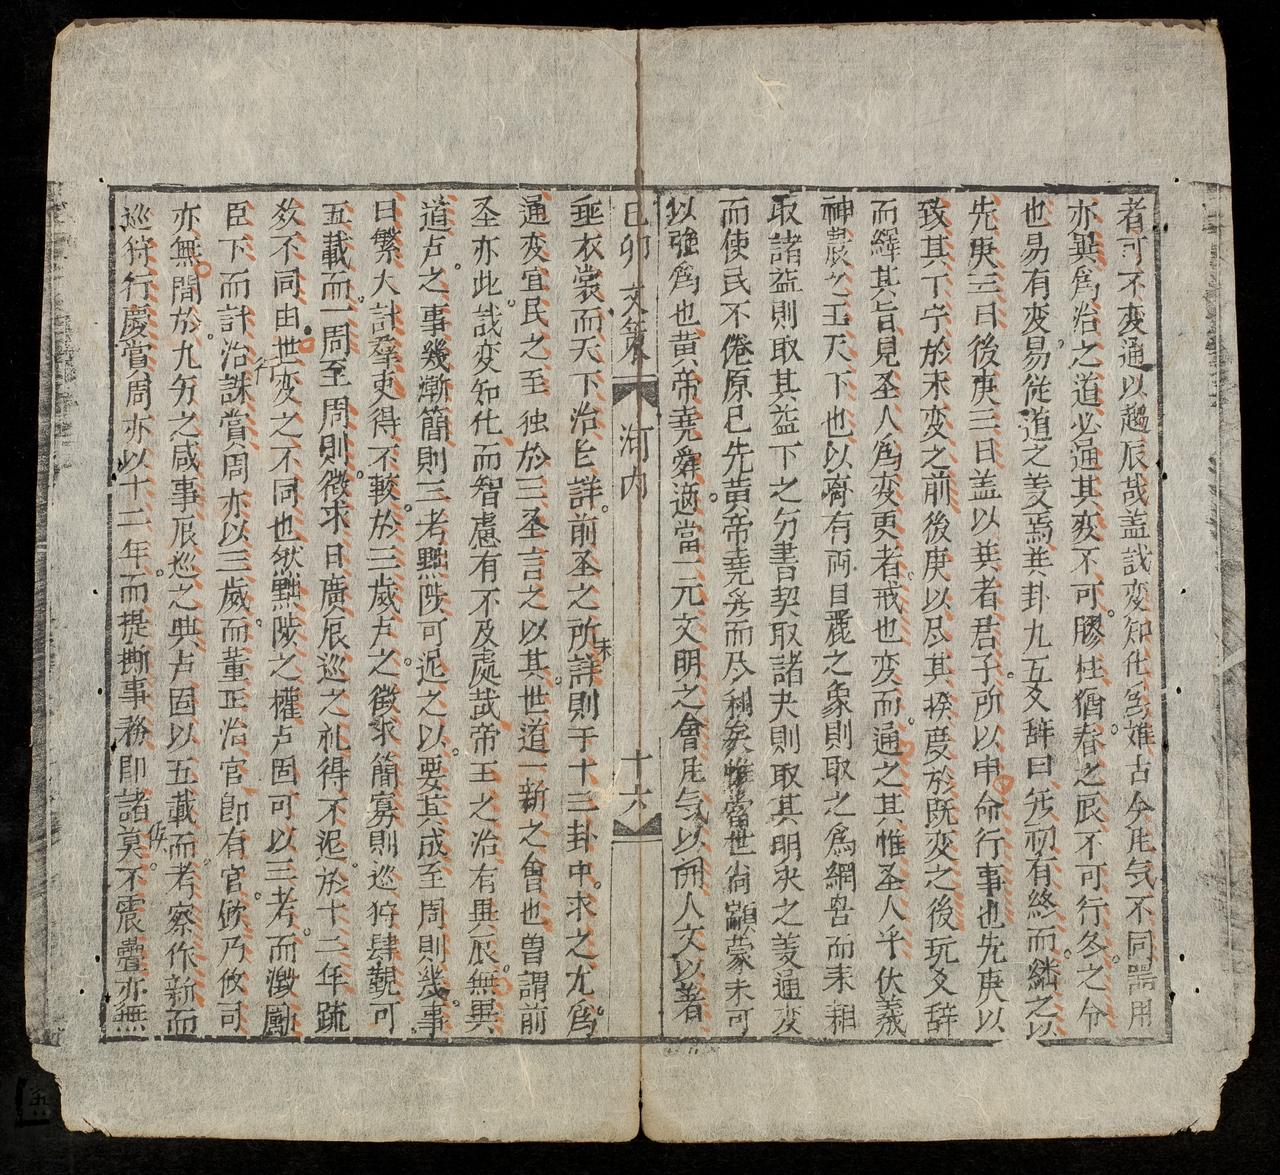 者可不変通以趨辰哉盖誠変知化為难古今凮気不同噐用
亦異為治之道必通其変不可膠柱猶春之辰不可行冬之令
也易有変易従道之義焉巽卦九五爻辞曰无初有終而繇之以
先庚三日後庚三日盖以巽者君子所以申命行事也先庚以
致其丁宁於未変之前後庚以尽其揆度於既変之後玩爻辞
而繹其旨見圣人為変更者戒也変而通之其惟圣人乎伏羲
神農之王天下也以離有両目麗之象則取之為網罟而耒耜
取諸益則取其益下之分書契取諸夬則取其明决之義通変
而使民不倦原已先黄帝尭舜而及利矣惟當世尚顓蒙未可
以強為也黄帝尭舜適當一元文明之會凮気以開人文以著
己卯　文策　河内　十六
垂衣裳而天下治㐌詳前圣之所詳則于十三卦中求之尤為
未
通変宜民之至独於三圣言之以其世道一新之會也曽謂前
圣亦此哉変知化而智慮有不及處哉帝王之治有異辰無異
道占之事幾漸簡則三考黜陟可迟之以要其成至周則幾事
日繁大計羣吏得不較於三歲占之徵求簡寡則巡狩肆覲可
五載而一周至周則徵求日廣辰巡之礼得不迟於十二年疏
数不同由世変之不同也然黜陟之權占固可以三考而激勵
行
臣下而計治誅賞周亦以三歲而董正治官即有官攸乃攸司
亦無間於九分之咸事辰巡之典占固以五載而考察作新而
巡狩行慶賞周亦以十二年而提撕事務即諸莫不震疊亦無
侯